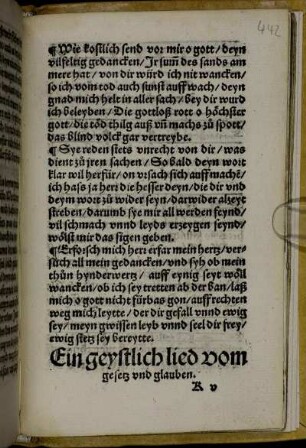 442
¶Wie kostlich send vor mir o gott/deyn
vilfeltig gedancken/Jr sum̃ des sands am
mere hat/von dir würd ich nit wancken/
so ich vom tod auch sunst auffwach/deyn
gnad mich helt in aller sach/bey dir wurd
ich beleyben/Die gottloß rott o höchster
gott/die töd thilg auß vñ machs zu spott/
das blind volck gar vertreybe.
¶Sye reden stets vnrecht von dir/was
dient zů jren sachen/So bald deyn wort
klar wil herfür/on vrsach sich auffmachē/
ich haß ja herr die hesser deyn/die dir vnd
deym wort zu wider seyn/darwider alzeyt
streben/darumb sye mir all werden feynd/
vil schmach vnnd leyds erzeygen seynd/
wölst mir das sigen geben.
¶Erforsch mich herr erfar mein hertz/ver-
sůch all mein gedancken/vnd syh ob mein
thün hynderwertz/auff eynig seyt wöll
wancken/ob ich sey tretten ab der ban/laß
mich o gott nicht fürbas gon/auff rechten
weg mich leytte/der dir gefall vnnd ewig
sey/meyn gwissen leyb vnnd seel dir frey/
ewig stetz sey bereytte.
Ein geystlich lied vom
gesetz vnd glauben.
K v